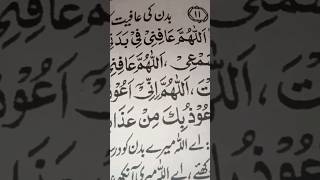 بدن کی عافیت (۱۱)
اَللّٰهُمَّ عَافِنِیْ فِیْ بَدَ
سَمْعِیْ، اَللّٰهُمَّ عَافِنِ
تَ، اَللّٰهُمَّ اِنِّیْ اَعُوْ
عُوْذُ بِكَ مِنْ عَذَا
: اے اللہ میرے بدن کو درس
رکھئے، اے اللہ میری آنکھو